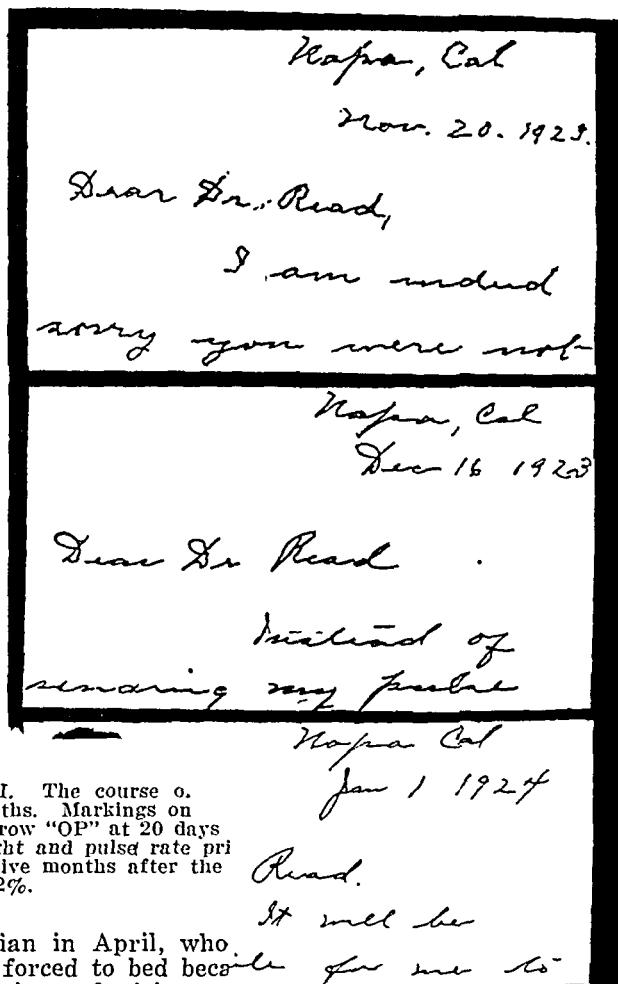 Napa, Cal
Nov. 20. 1923.
Dear Dr. Read,
I am indeed
sorry you were not
Napa, Cal
Dec 16 1923
Dear Dr Read
Instead of
sending my pulse
Napa Cal
Jan 1 1924
Read.
It will be
for me to
I. The course o.
ths. Markings on
row "OP" at 20 days
ht and pulse rate pri
ive months after the
2%.
ian in April, who
forced to bed beca